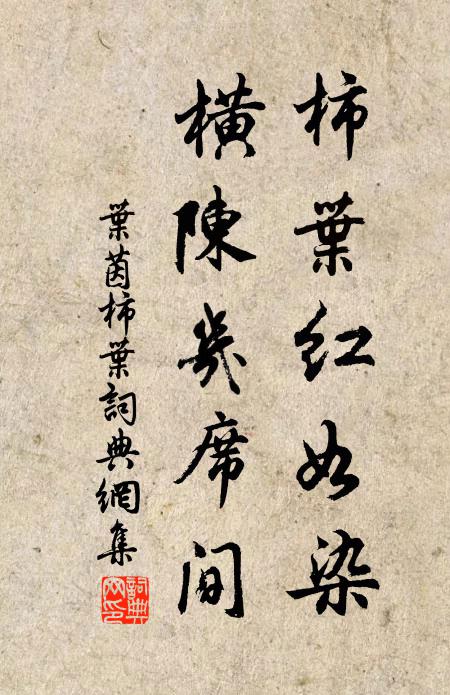 柿葉紅如染
橫陳几席間
葉茵柿葉詞典網集
詞典